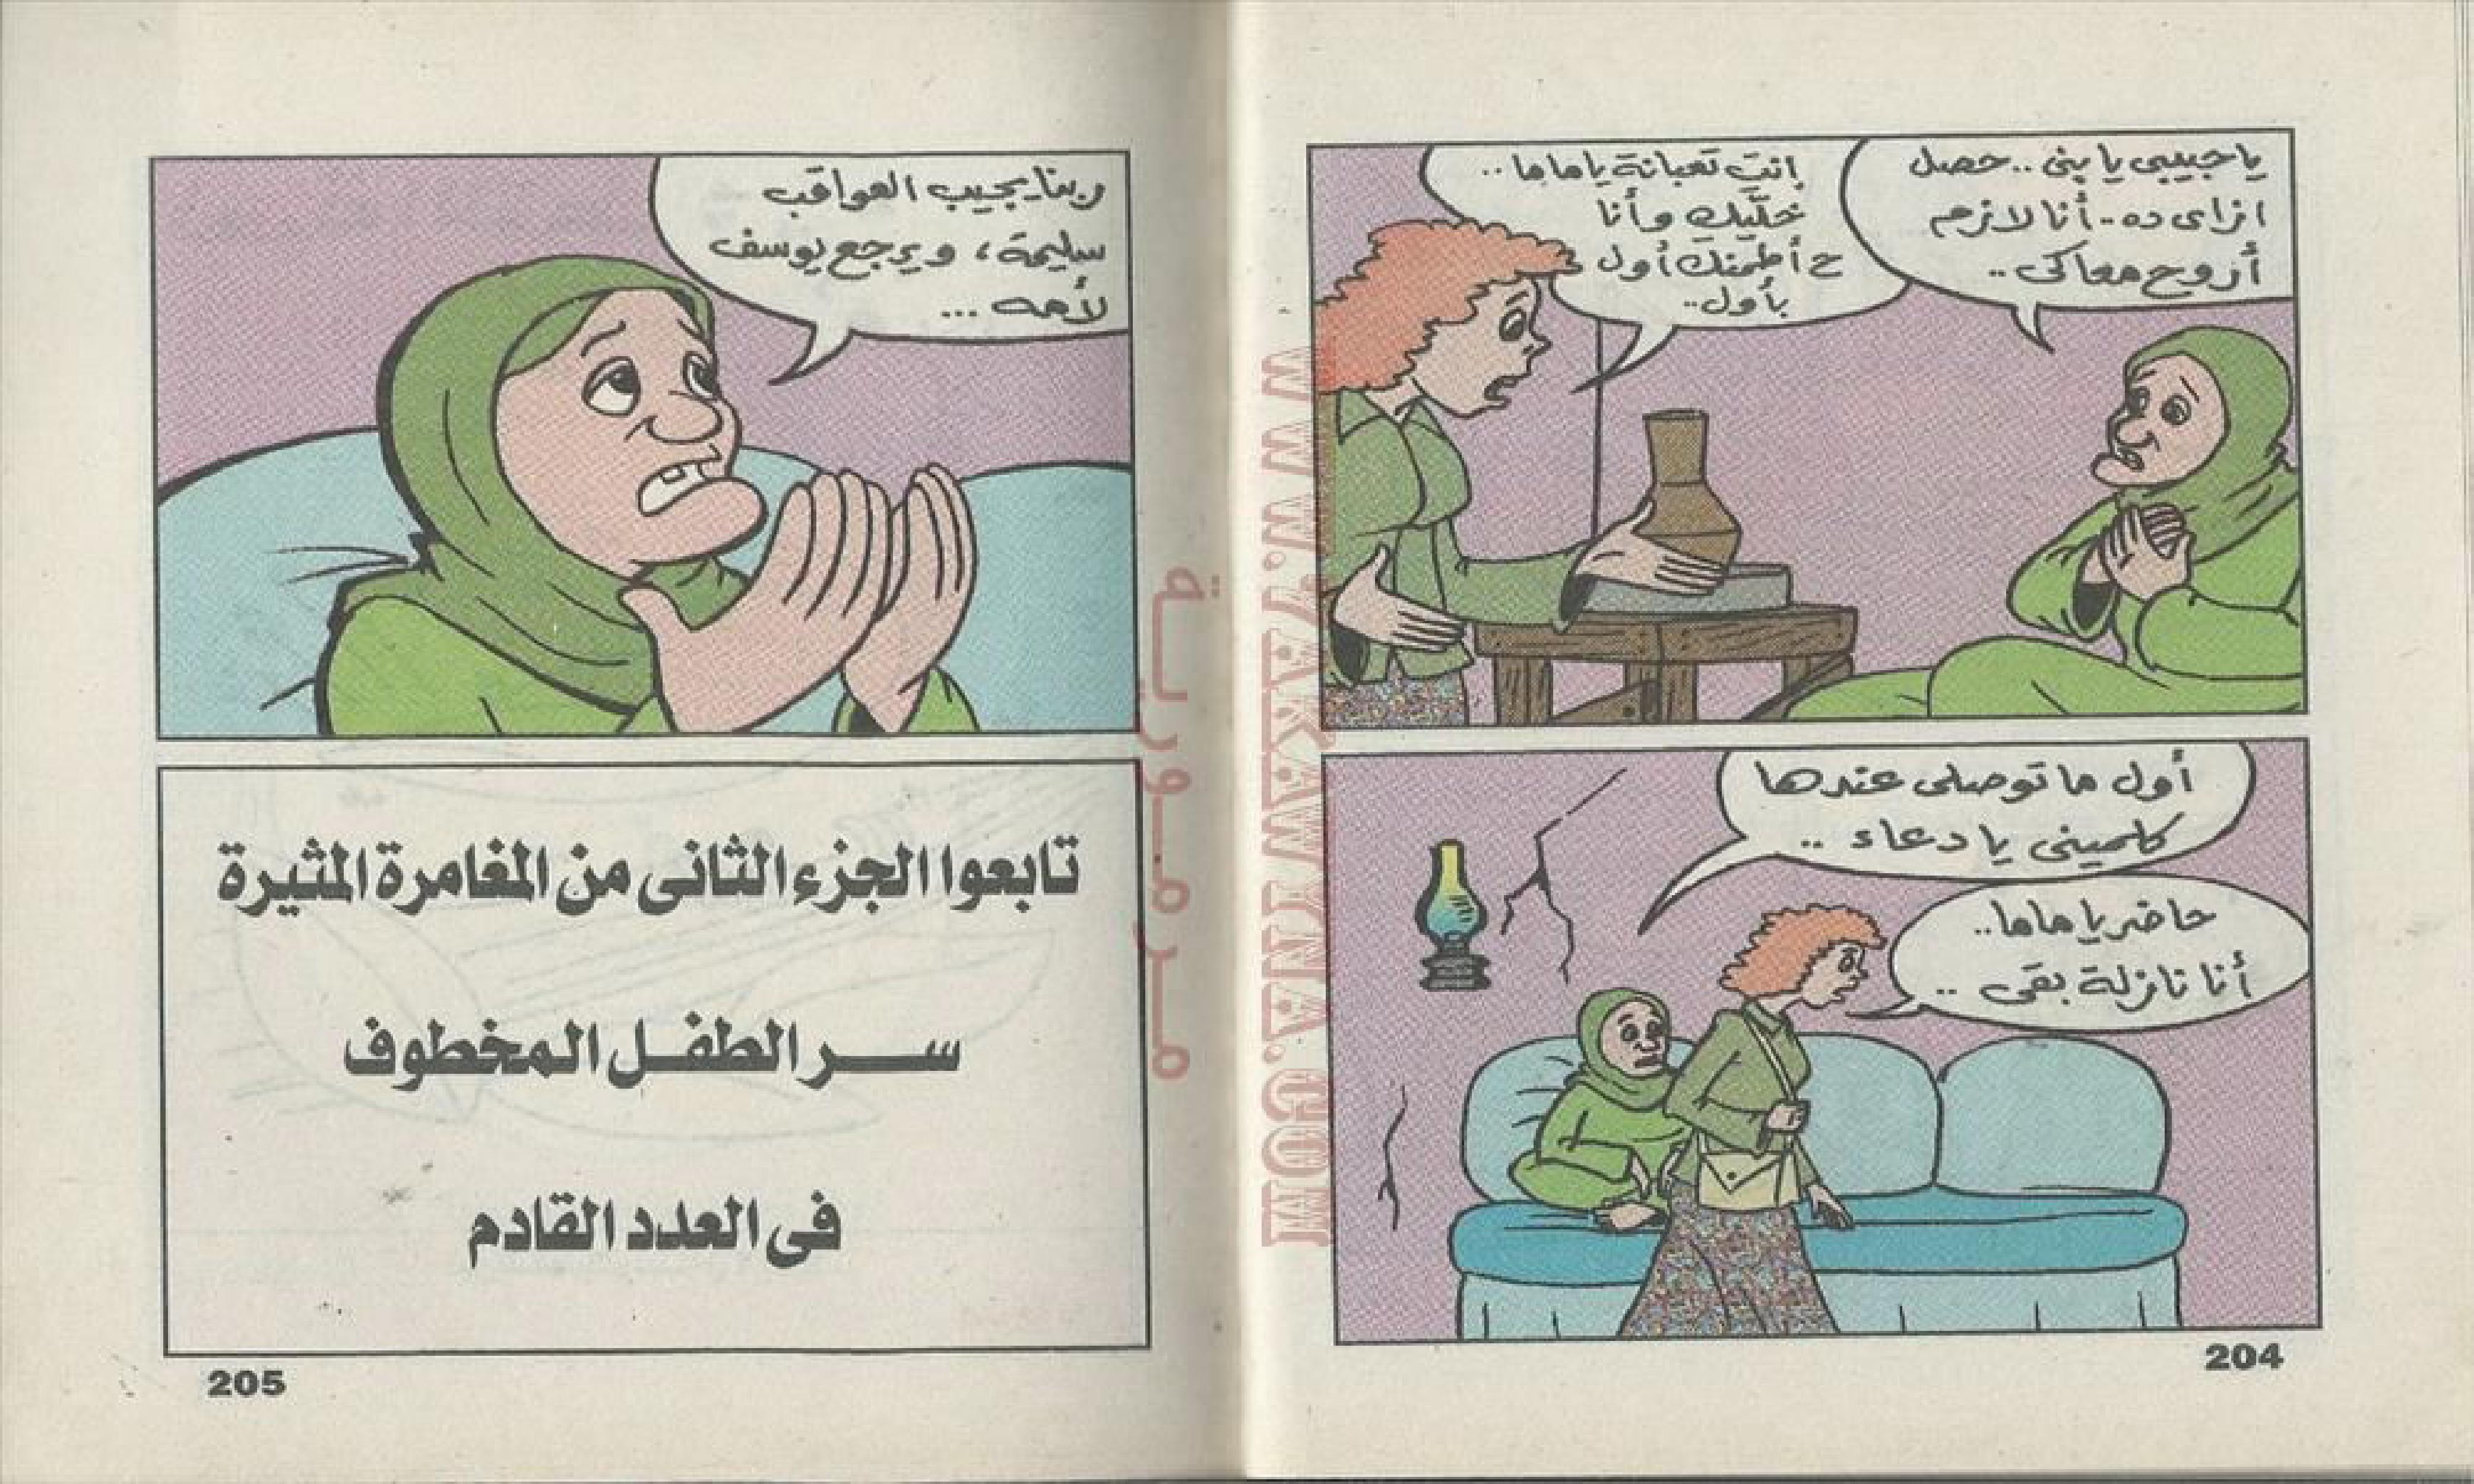 يا حبيبى يا بنى.. حصل
ازاى ده.. أنا لازم
أروح معاكى..
إنت تعبانة يا ماما..
خلّيكِ وأنا
ح أطمنك أول
بأول..
أول ما توصلى عندها
كلمينى يا دعاء ..
حاضر يا ماما..
أنا نازلة بقى ..
204
ربنا يجيب العواقب
سليمة، ويرجع يوسف
لأمه ...
تابعوا الجزء الثانى من المغامرة المثيرة
سر الطفل المخطوف
فى العدد القادم
205
مرمورية